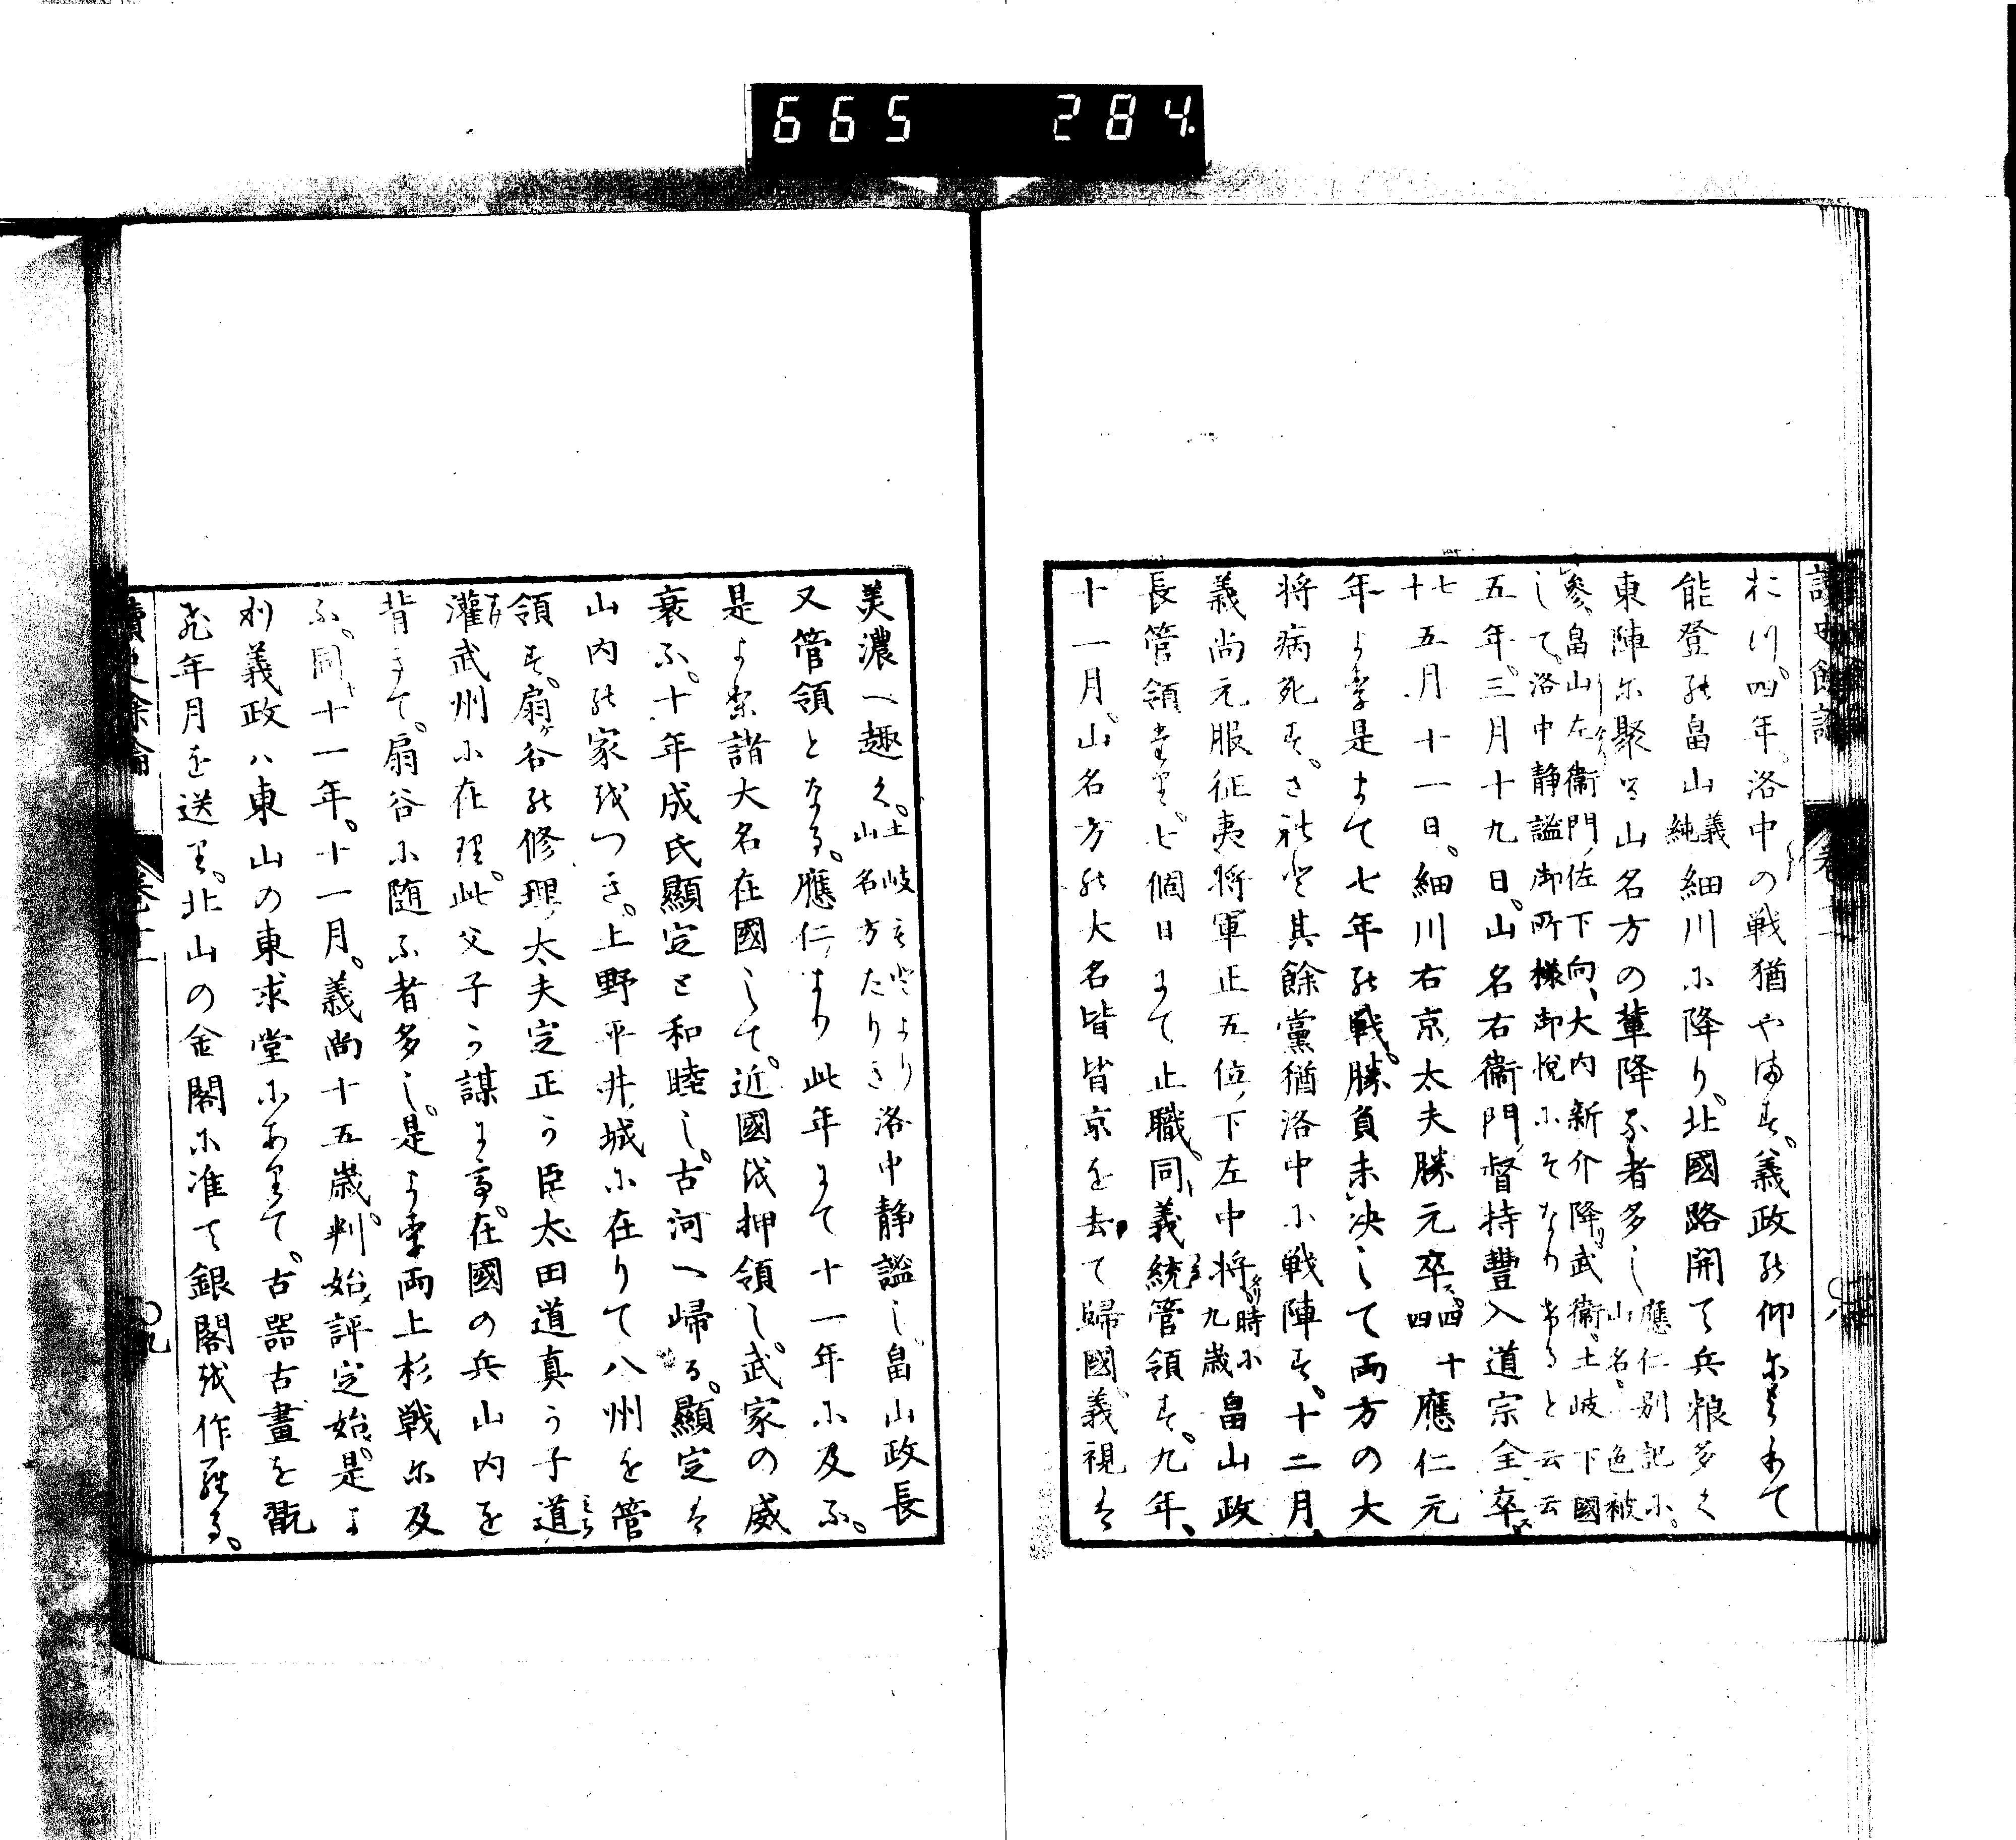 665 284
於ゐ川。四年。洛中の戦猶やまず。義政の仰によりて
能登の畠山義純細川に降り。北國路開て兵粮多く
東陣に聚る山名方の輩降る者多し應仁別記に。山名。色被
參。畠山左衞門佐下向、大内新介降武衞。土岐下國して。洛中静謐御所様御悦にそなり申ると云云
五年。三月十九日。山名右衞門督持豐入道宗全卒ス
七十五月十一日。細川右京太夫勝元卒。四十四應仁元
年より是まて七年の戰。勝負未決して両方の大
将病死す。されと其餘黨猶洛中に戦陣す。十二月。
義尚元服征夷将軍正五位下左中将時に九歳畠山政
長管領たり。七個日にて止職。同義統管領す。九年。
十一月。山名方の大名皆皆京を去て歸國。義視は
美濃へ趣く。土岐もとより山名方たりき洛中静謐し。畠山政長
又管領となる。應仁より此年まて十一年に及ふ。
是より諸大名在國して。近國を押領し。武家の威
衰ふ。十年成氏顯定と和睦し。古河へ歸る。顯定は
山内の家をつき。上野平井城に在りて八州を管
領す。扇谷の修理太夫定正か臣太田道真か子道
灌武州に在り。此父子か謀にて。在國の兵山内を
背きて。扇谷に随ふ者多し。是より両上杉戦に及
ふ。同十一年。十一月。義尚十五歳。判始評定始。是よ
り義政ハ東山の東求堂にありて。古器古畫を翫
ひ年月を送り。北山の金閣に准て銀閣を作らる。
讀史餘論 卷十一 〇九